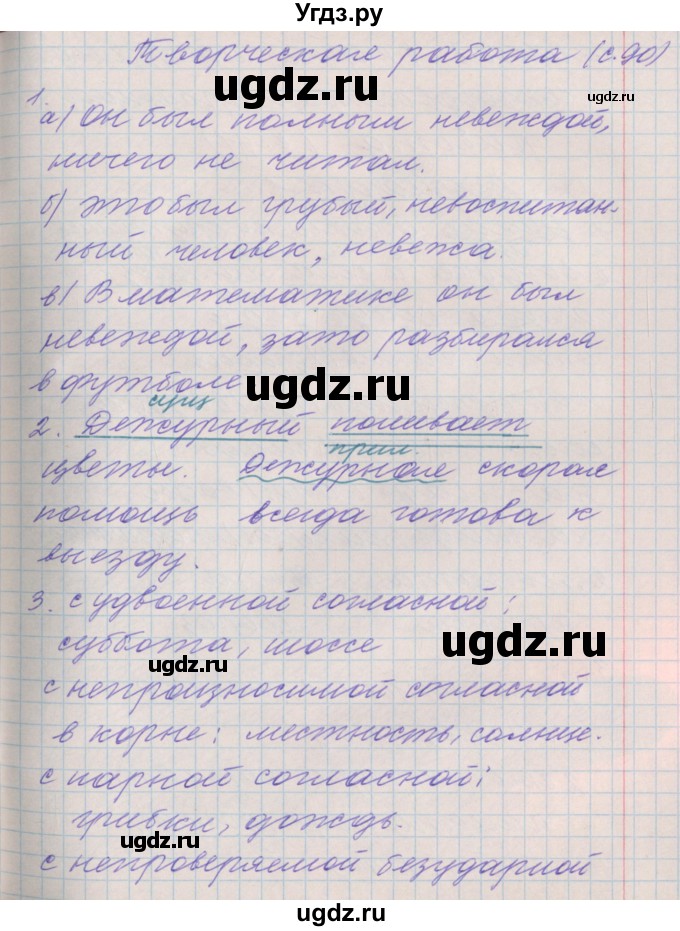 Угдз.ру
Творческая работа (с.90)
ugdz.ru
ugdz.ru
1. а) Он был полным невеждой,
ничего не читал.
б) Это был грубый, невоспитан-
ный человек, невежа.
в) В математике он был
невеждой, зато разбирался
в футболе
ugdz.ru
сущ
2. Дежурный поливает
прил.
цветы. Дежурная скорая
помощь всегда готова к
выезду.
ugdz.ru
3. с удвоенной согласной:
суббота, шоссе
ugdz.ru
ugdz.ru
с непроизносимой согласной
в корне: местность, солнце.
с парной согласной:
грибки, дождь.
ugdz.ru
с непроверяемой безударной
ugdz.ru